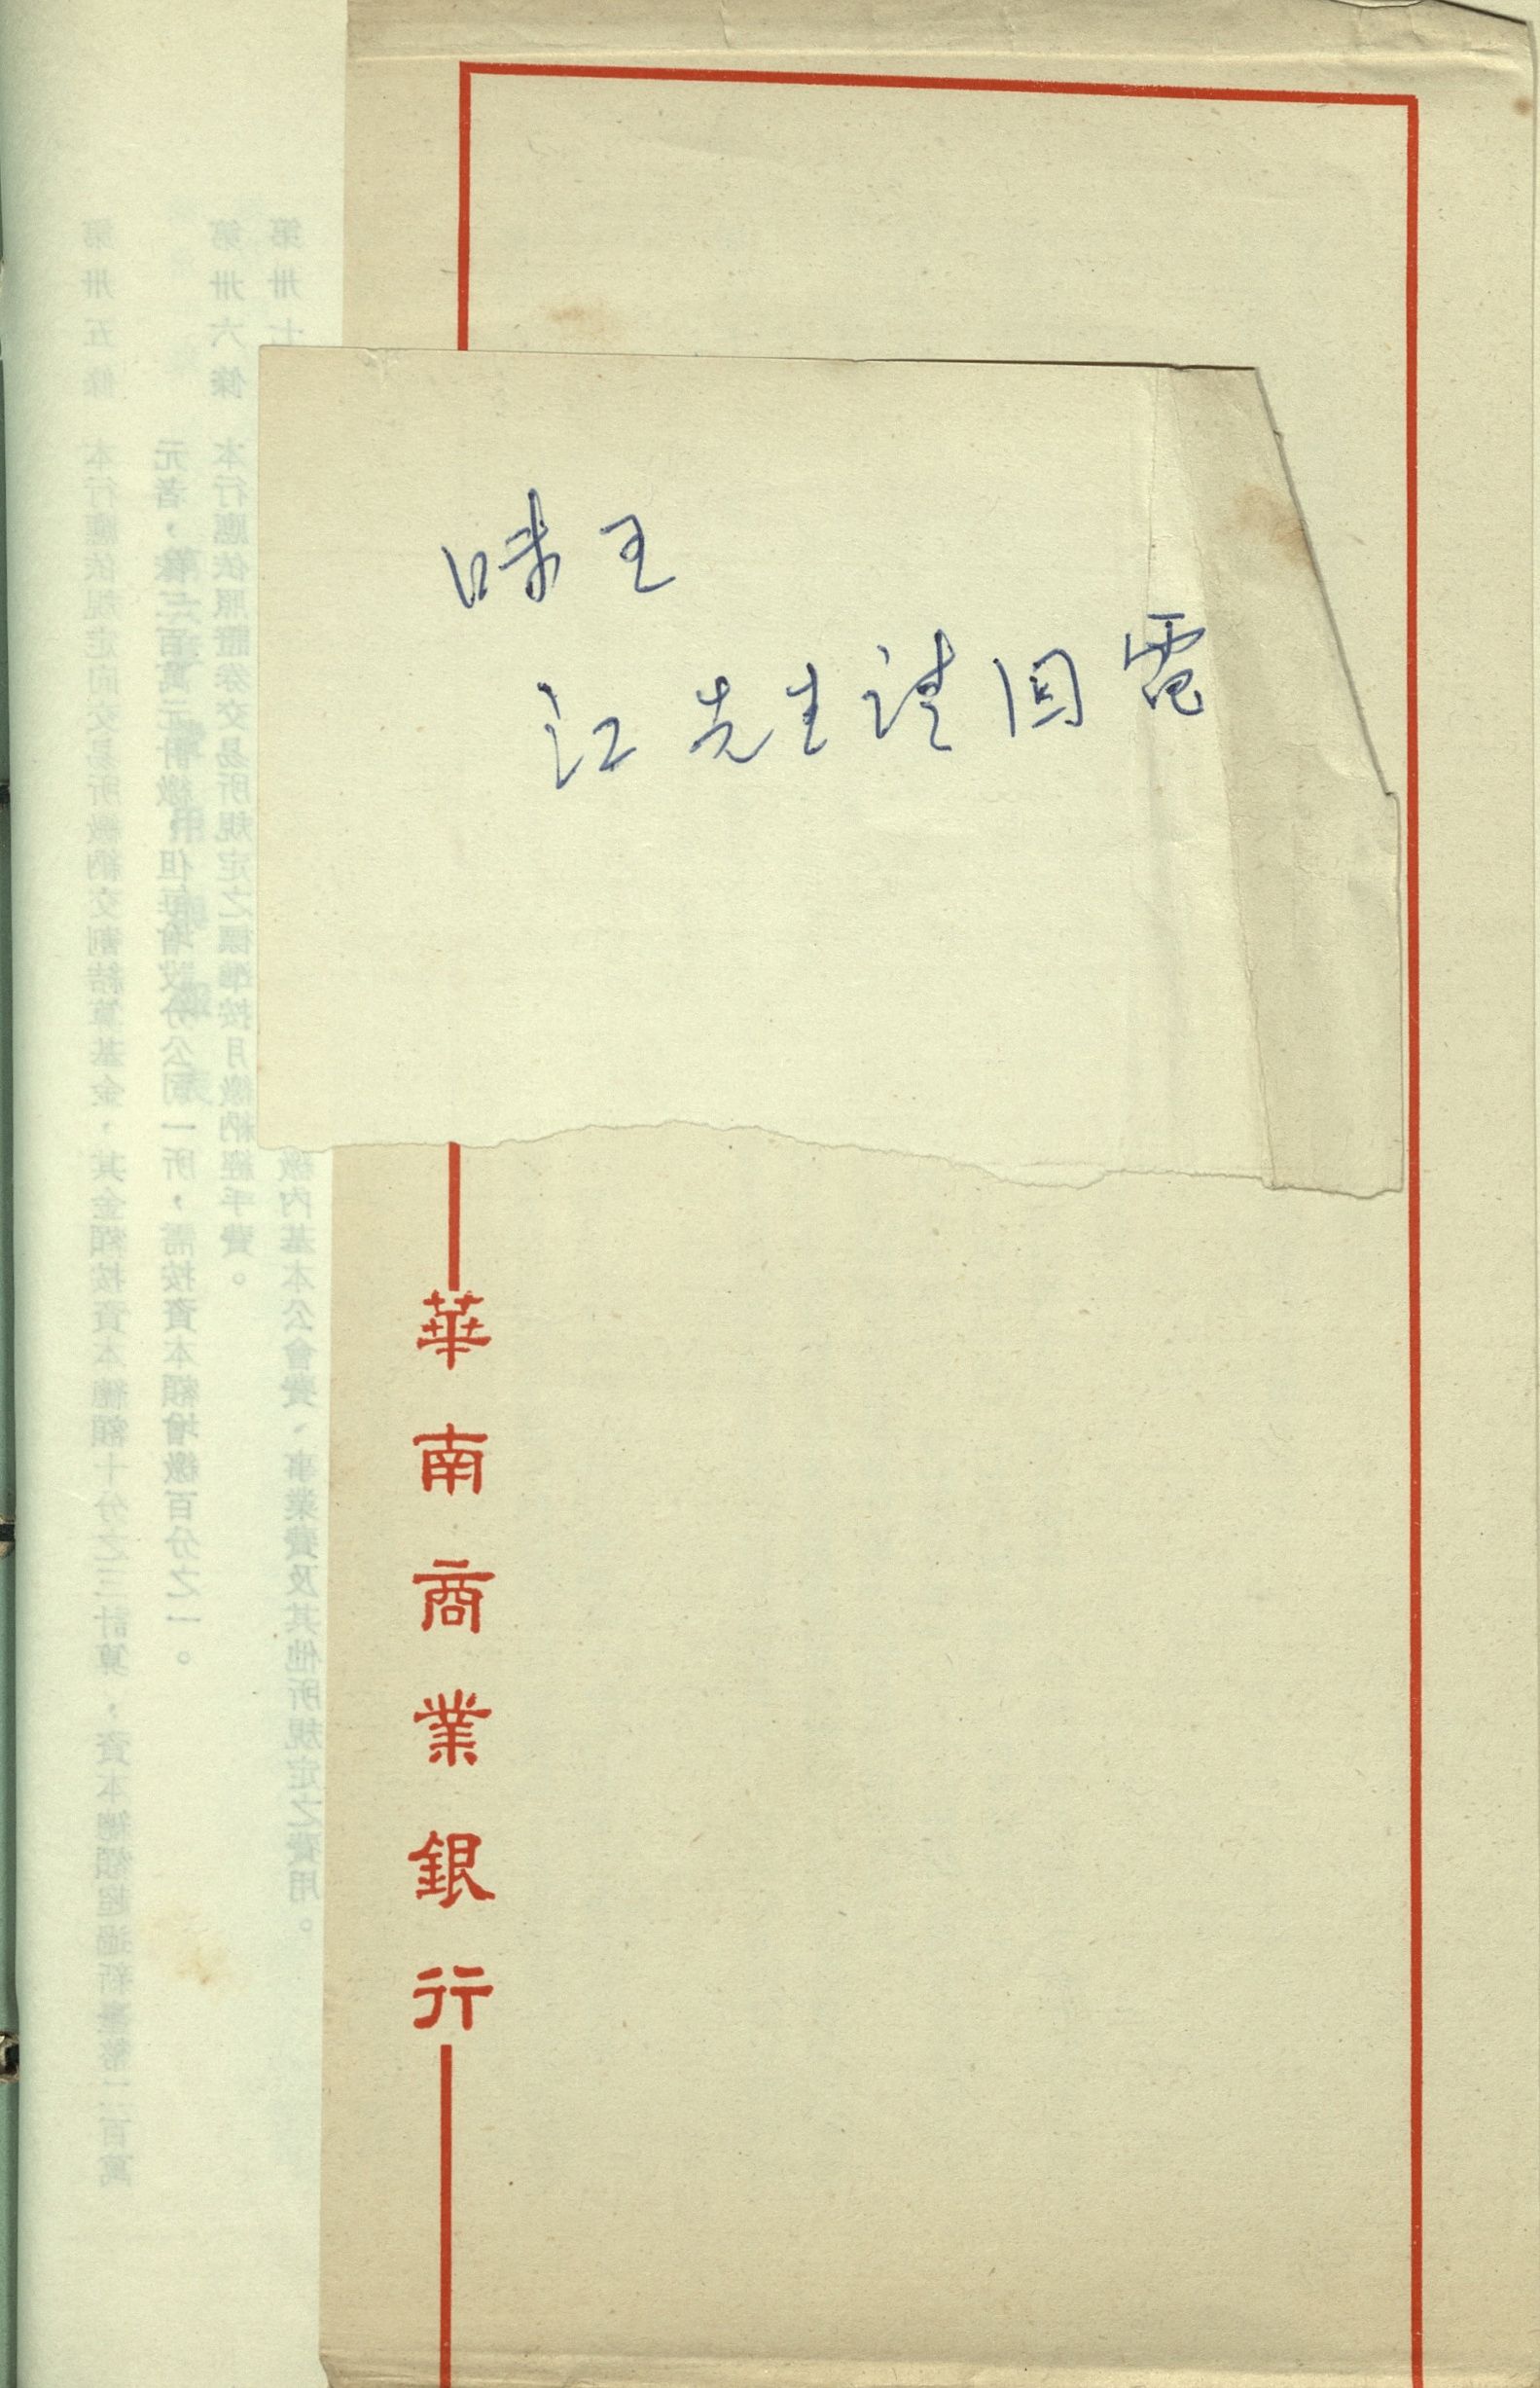 味王
江先生請回電
華南商業銀行
第卅五條 本行應依規定向交易所繳納交割結算基金，其金額按資本總額十分之三計算，資本總額超過新臺幣二百萬
元者，但每增設分公司一所，需按資本額增繳百分之一。
第卅六條 本行應依照證券交易所規定之標準按月繳納經手費。
第卅七
基本公會費、事業費及其他所規定之費用。